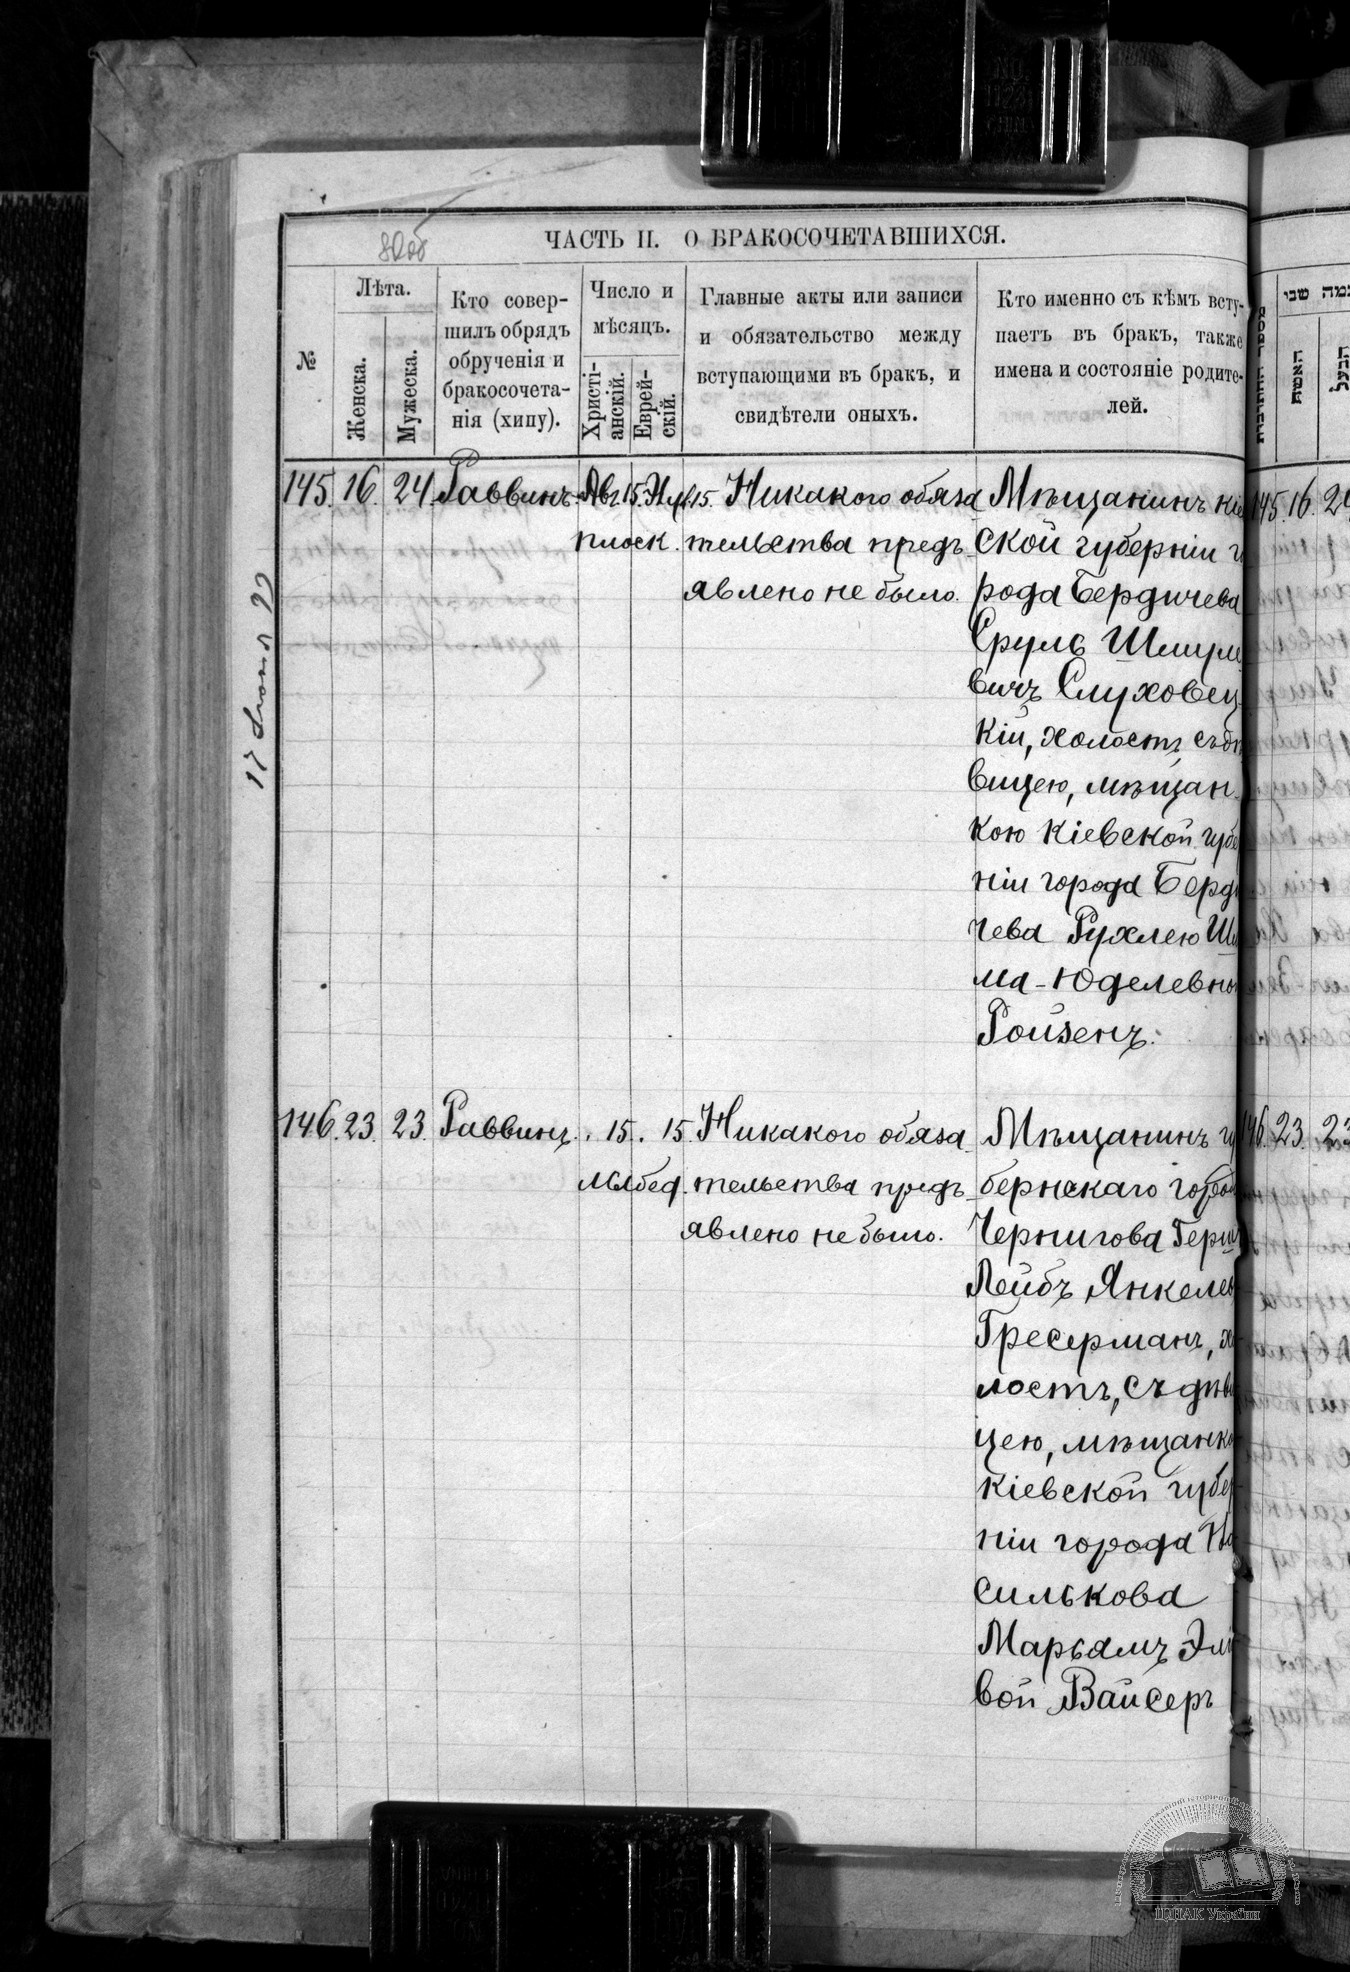 ЧАСТЬ II. О БРАКОСОЧЕТАВШИХСЯ.
№
Лѣта.
Женска.
Мужеска.
Кто совер-
шилъ обрядъ
обрученія и
бракосочета-
нія (хипу).
Число и
мѣсяцъ.
Христі-
анскій.
Еврей-
скій.
Главные акты или записи
и обязательство между
вступающими въ бракъ, и
свидѣтели оныхъ.
Кто именно съ кѣмъ всту-
паетъ въ бракъ, также
имена и состояніе родите-
лей.
145. 16. 24. Раввинъ Авг. 15. 15.
Никакого обяза
тельства предъ
явлено не было.
Мѣщанинъ кіе
ской губерніи г
рода Бердичева
Сруль Шмуле
вичъ Слуховец
кій, холостъ съ дѣ
вицею, мѣщан
кою кіевской губе
ніи города Берди
чева Рухлею Шл
ма-Юделевно
Ройзенъ.
146. 23. 23. Раввинъ. 15. 15.
Никакого обяза
тельства предъ
явлено не было.
Мѣщанинъ гу
бернскаго город
Чернигова Герш
Лейбъ Янкелев
Гресерманъ, хо
лостъ, съ дѣви
цею, мѣщанко
кіевской губер
ніи города Ва
силькова
Марьямъ Эли
вой Вайсеръ
145. 16. 24
146. 23. 23
שני
האשה
הבעל
ЦДІАК України